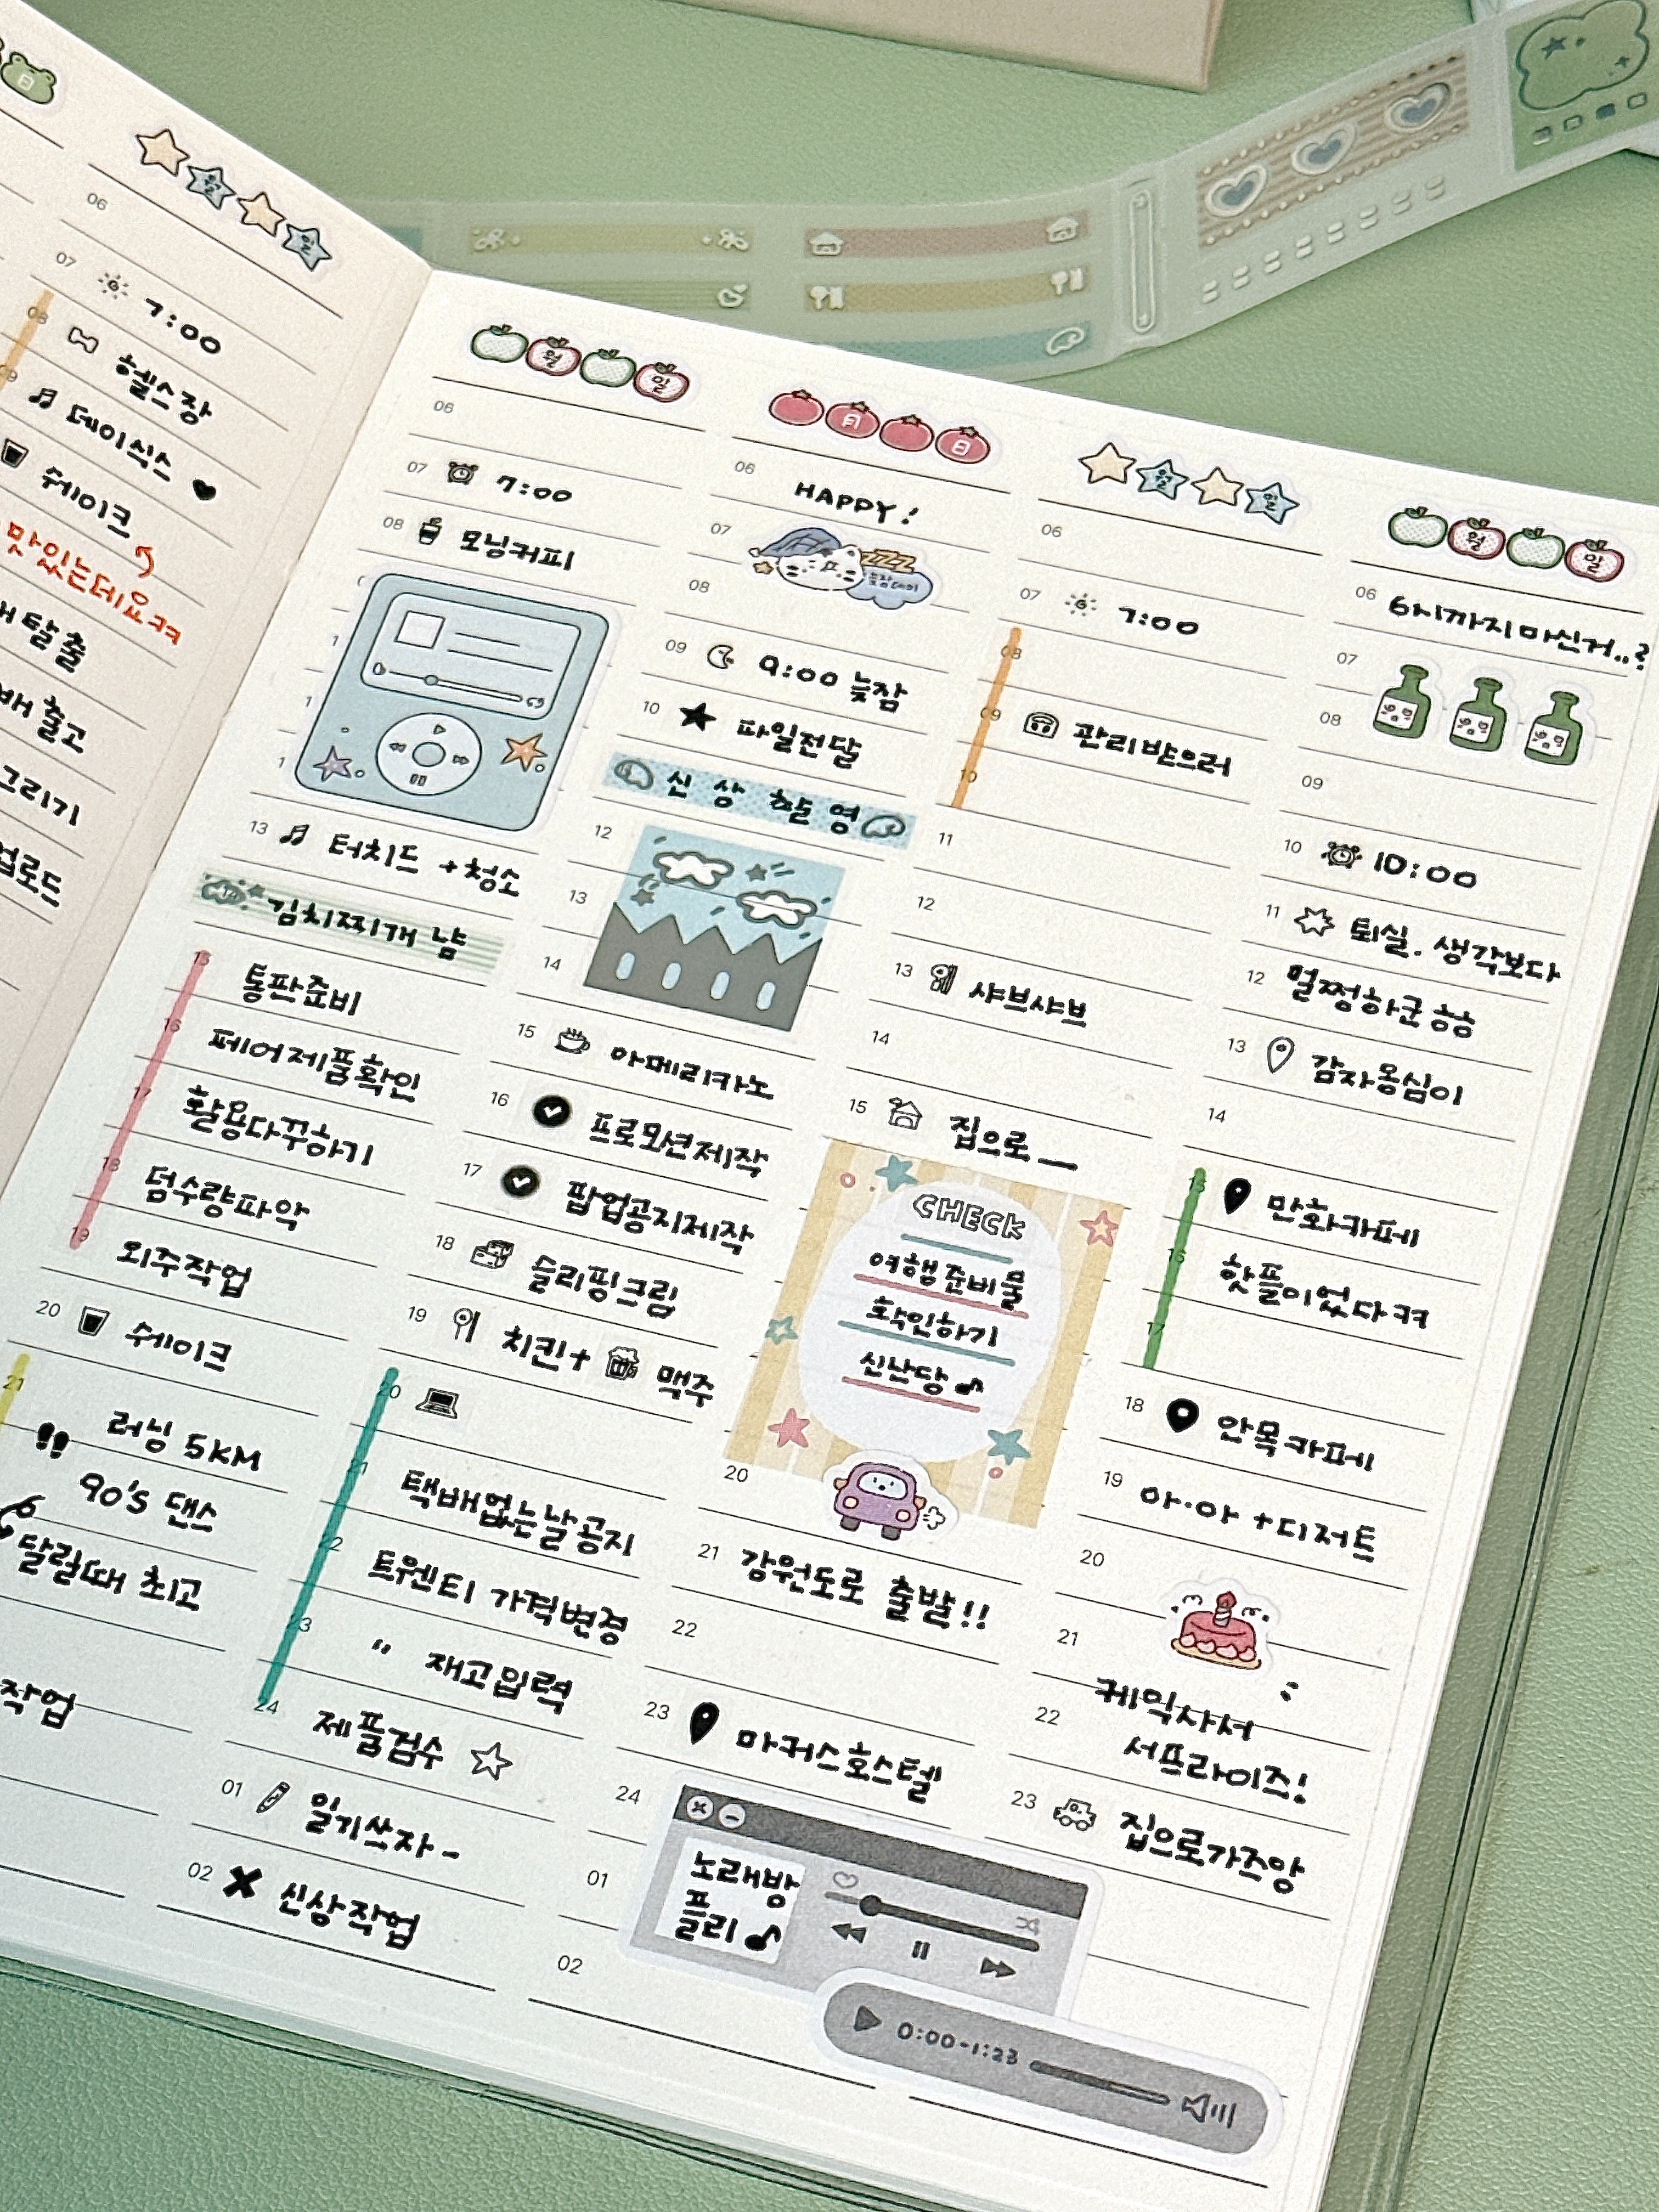 06
07 7:00
08 헬스장
09 데이식스
쉐이크
맛있는데요ㅋㅋ
탈출
출고
그리기
업로드
작업
월 일
06
07 7:00
08 모닝커피
13 터치드 +청소
김치찌개 냠
15 통판준비
16 페어제품확인
17 활용다꾸하기
18 덤수량파악
19 외주작업
20 쉐이크
21
러닝 5KM
90's 댄스
달릴때 최고
月 日
06 HAPPY!
07 zzz 늦잠데이
08
09 9:00 늦잠
10 파일전달
신상 촬영
12
13
14
15 아메리카노
16 프로모션제작
17 팝업공지제작
18 슬리핑크림
19 치킨+ 맥주
20
21 택배없는날공지
22 트웬티 가격변경
23 " 재고입력
24 제품검수
01 일기쓰자-
02 신상작업
월 일
06
07 7:00
08
09 관리받으러
10
11
12
13 샤브샤브
14
15 집으로—
CHECK
여행준비물
확인하기
신난당♪
20
21 강원도로 출발!!
22
23 마커스호스텔
24
01
02
노래방
플리♪
0:00-1:23
월 일
06 6시까지마신거..?
07
08
09
10 10:00
11 퇴실. 생각보다
12 멀쩡하군ㅎㅎ
13 감자옹심이
14
15 만화카페
16 핫플이었다ㅋㅋ
17
18 안목카페
19 아·아 +디저트
20
21
케익사서
22 서프라이즈!
23 집으로가즈앙